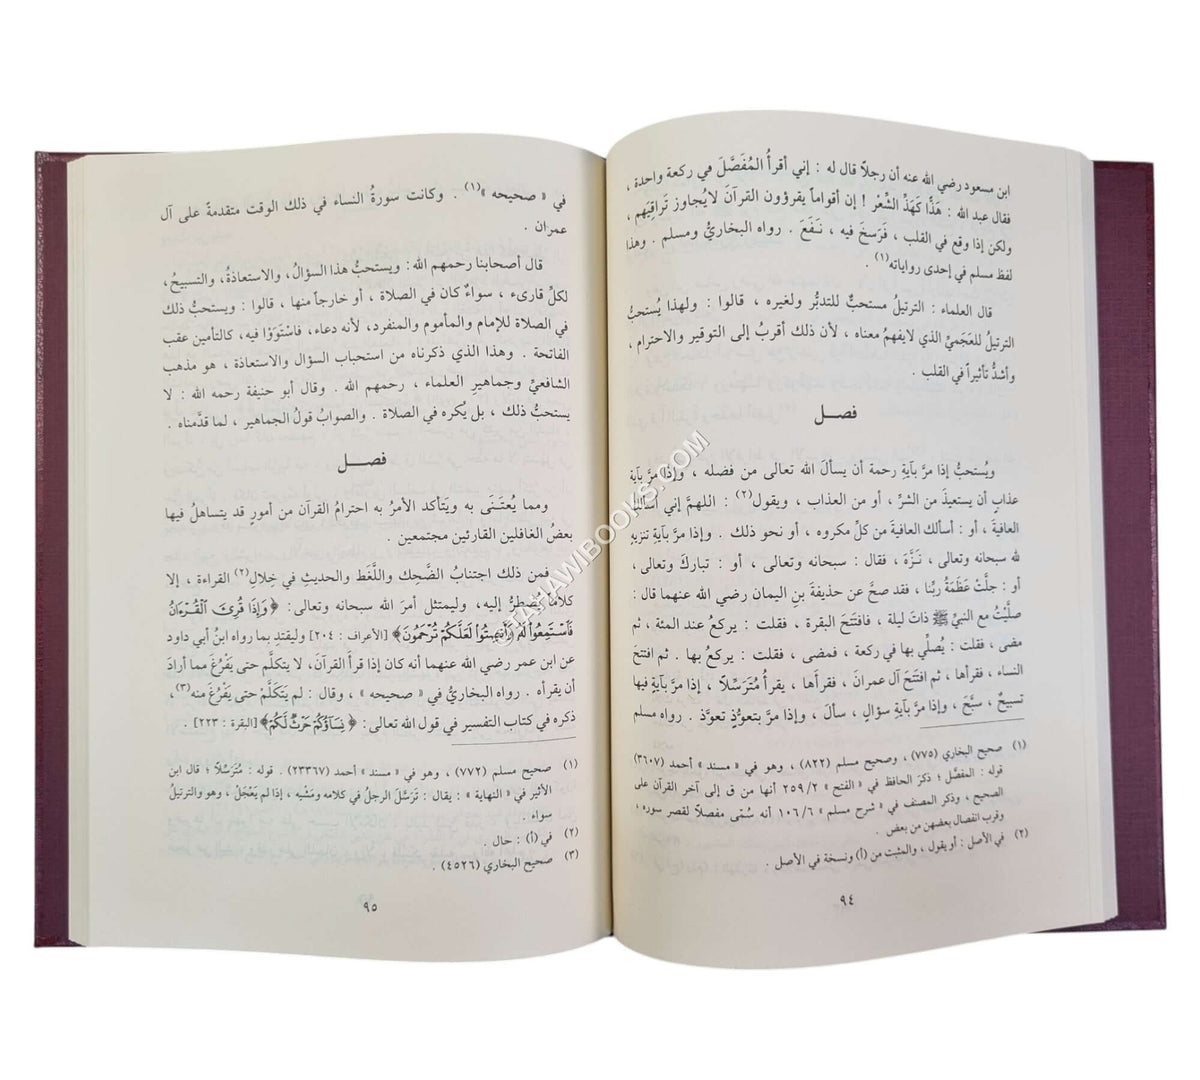 ابن مسعود رضي الله عنه أن رجلاً قال له : إني أقرأُ المُفَصَّلَ في ركعة واحدة ،
فقال عبد الله : هَذًّا كَهَذِّ الشِّعْر ! إن أقواماً يقرؤون القرآنَ لا يُجاوز تَراقِيَهم ،
ولكن إذا وقع في القلب ، فَرَسَخَ فيه ، نَـفَعَ . رواه البخاريُّ ومسلم . وهذا
لفظ مسلم في إحدى رواياته(١) .
قال العلماء : الترتيلُ مستحبٌّ للتدبُّر ولغيره ، قالوا : ولهذا يُستحبُّ
الترتيلُ للعَجَميِّ الذي لايفهمُ معناه ، لأن ذلك أقربُ إلى التوقير والاحترام ،
وأشدُّ تأثيراً في القلب .
فصـــل
ويُستحبُّ إذا مرَّ بآيةِ رحمة أن يسألَ الله تعالى من فضله ، وإذا مرَّ بآية
عذابٍ أن يستعيذَ من الشرِّ ، أو من العذاب ، ويقول(٢) : اللهمَّ إني أسألك
العافيةَ ، أو : أسألك العافيةَ من كلِّ مكروه ، أو نحو ذلك . وإذا مرَّ بآيةِ تنزيهٍ
لله سبحانه وتعالى ، نَـزَّهَ ، فقال : سبحانه وتعالى ، أو : تباركَ وتعالى ،
أو : جلَّتْ عَظَمَةُ ربِّنا ، فقد صحَّ عن حذيفةَ بنِ اليمان رضي الله عنهما قال :
صلَّيْتُ مع النبيِّ ﷺ ذاتَ ليلة ، فافتتحَ البقرة ، فقلت : يركعُ عند المئة ، ثم
مضى ، فقلت : يُصلِّي بها في ركعة ، فمضى ، فقلت : يركعُ بها . ثم افتتح
النساء ، فقرأها ، ثم افتتَحَ آل عمرانَ ، فقرأها ، يقرأُ مُتَرَسِّلاً ، إذا مرَّ بآيةٍ فيها
تسبيحٌ ، سبَّحَ ، وإذا مرَّ بآيةِ سؤالٍ ، سألَ ، وإذا مرَّ بتعوُّذٍ تعوَّذ . رواه مسلم
(١) صحيح البخاري (٧٧٥) ، وصحيح مسلم (٨٢٢) ، وهو في « مسند » أحمد (٣٦٠٧)
قوله : المفصَّل ؛ ذكرَ الحافظ في « الفتح » ٢٥٩/٢ أنها من ق إلى آخر القرآن على
الصحيح ، وذكر المصنف في « شرح مسلم » ١٠٦/٦ أنه سُمّى مفصلاً لقصر سوره ،
وقرب انفصال بعضهن من بعض .
(٢) في الأصل : أو يقول ، والمثبت من (أ) ونسخة في الأصل .
٩٤
في « صحيحه »(١) . وكانت سورةُ النساء في ذلك الوقت متقدمةً على آل
عمران .
قال أصحابنا رحمهم الله : ويستحبُّ هذا السؤالُ، والاستعاذةُ، والتسبيحُ،
لكلِّ قارىء ، سواءٌ كان في الصلاة ، أو خارجاً منها ، قالوا : ويستحبُّ ذلك
في الصلاة للإمام والمأموم والمنفرد، لأنه دعاء، فاسْتَوَوْا فيه، كالتأمين عقب
الفاتحة . وهذا الذي ذكرناه من استحباب السؤال والاستعاذة ، هو مذهب
الشافعيِّ وجماهيرِ العلماء ، رحمهم الله . وقال أبو حنيفة رحمه الله : لا
يستحبُّ ذلك ، بل يُكره في الصلاة . والصوابُ قولُ الجماهير ، لما قدَّمناه .
فصـــل
ومما يُعتَـنَى به ويَتأكد الأمرُ به احترامُ القرآن من أمورٍ قد يتساهلُ فيها
بعضُ الغافلين القارئين مجتمعين .
فمن ذلك اجتنابُ الضَّحِك واللَّغَط والحديثِ في خِلالِ(٢) القراءة ، إلا
كلاماً يُضطرُّ إليه، وليمتثل أمرَ الله سبحانه وتعالى: ﴿وَإِذَا قُرِئَ ٱلْقُرْءَانُ
فَٱسْتَمِعُوا۟ لَهُۥ وَأَنصِتُوا۟ لَعَلَّكُمْ تُرْحَمُونَ﴾ [الأعراف : ٢٠٤] وليقتدِ بما رواه ابنُ أبي داود
عن ابن عمر رضي الله عنهما أنه كان إذا قرأ القرآنَ، لا يتكلَّم حتى يفْرُغَ مما أرادَ
أن يقرأه . رواه البخاريُّ في « صحيحه » ، وقال : لم يَتكلَّمْ حتى يَفْرُغَ منه(٣) ،
ذكره في كتاب التفسير في قول الله تعالى: ﴿ نِسَآؤُكُمْ حَرْثٌ لَّكُمْ﴾ [البقرة : ٢٢٣] .
(١) صحيح مسلم (٧٧٢) ، وهو في « مسند » أحمد (٢٣٣٦٧) . قوله : مُتَرَسِّلاً ؛ قال ابن
الأثير في « النهاية » : يقال : تَرَسَّلَ الرجلُ في كلامه ومَشْيِه ، إذا لم يَعْجَلْ ، وهو والترتيل
سواء .
(٢) في (أ) : حال .
(٣) صحيح البخاري (٤٥٢٦) .
٩٥